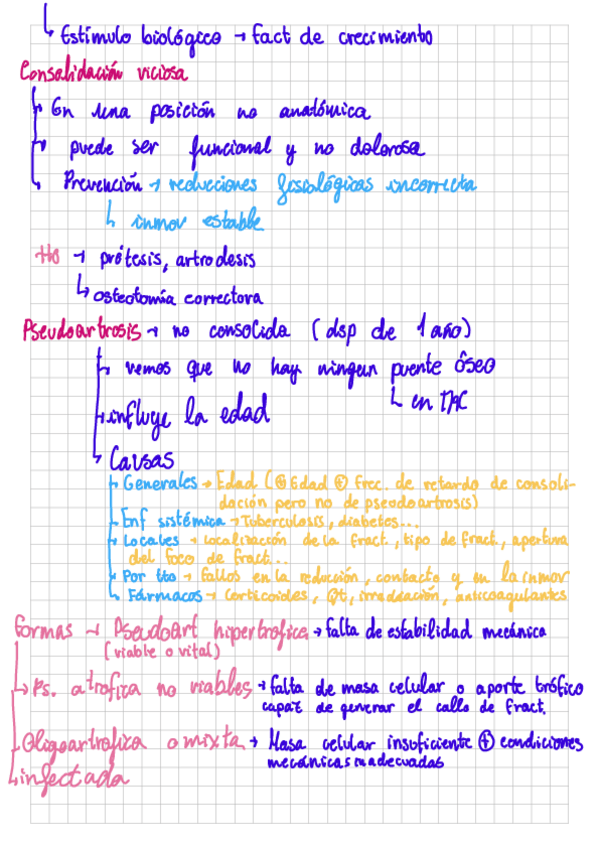 ↳ Estímulo biológico → fact de crecimiento
Consolidación viciosa
↳ En una posición no anatómica
↳ puede ser funcional y no dolorosa
↳ Prevención → reducciones fisiológicas incorrecta
↳ inmov estable
Tto → prótesis, artrodesis
↳ osteotomía correctora
Pseudoartrosis → no consolida (dsp de 1 año)
↳ vemos que no hay ningun puente óseo
↳ en TAC
↳ influye la edad
↳ Causas
↳ Generales → Edad (⊕ Edad ⊕ frec. de retardo de consoli-
dación pero no de pseudoartrosis)
↳ Enf sistémica → Tuberculosis, diabetes...
↳ Locales → Localización de la fract., tipo de fract., apertura
del foco de fract...
↳ Por tto → fallos en la reducción, contacto y en la inmov
↳ Fármacos → Corticoides, Qt, irradiación, anticoagulantes
formas → Pseudoart hipertrofica → falta de estabilidad mecánica
(viable o vital)
↳ Ps. atrofica no viables → falta de masa celular o aporte trófico
capaz de generar el callo de fract.
↳ Oligoartrofica o mixta → Masa celular insuficiente ⊕ condiciones
mecánicas inadecuadas
↳ infectada